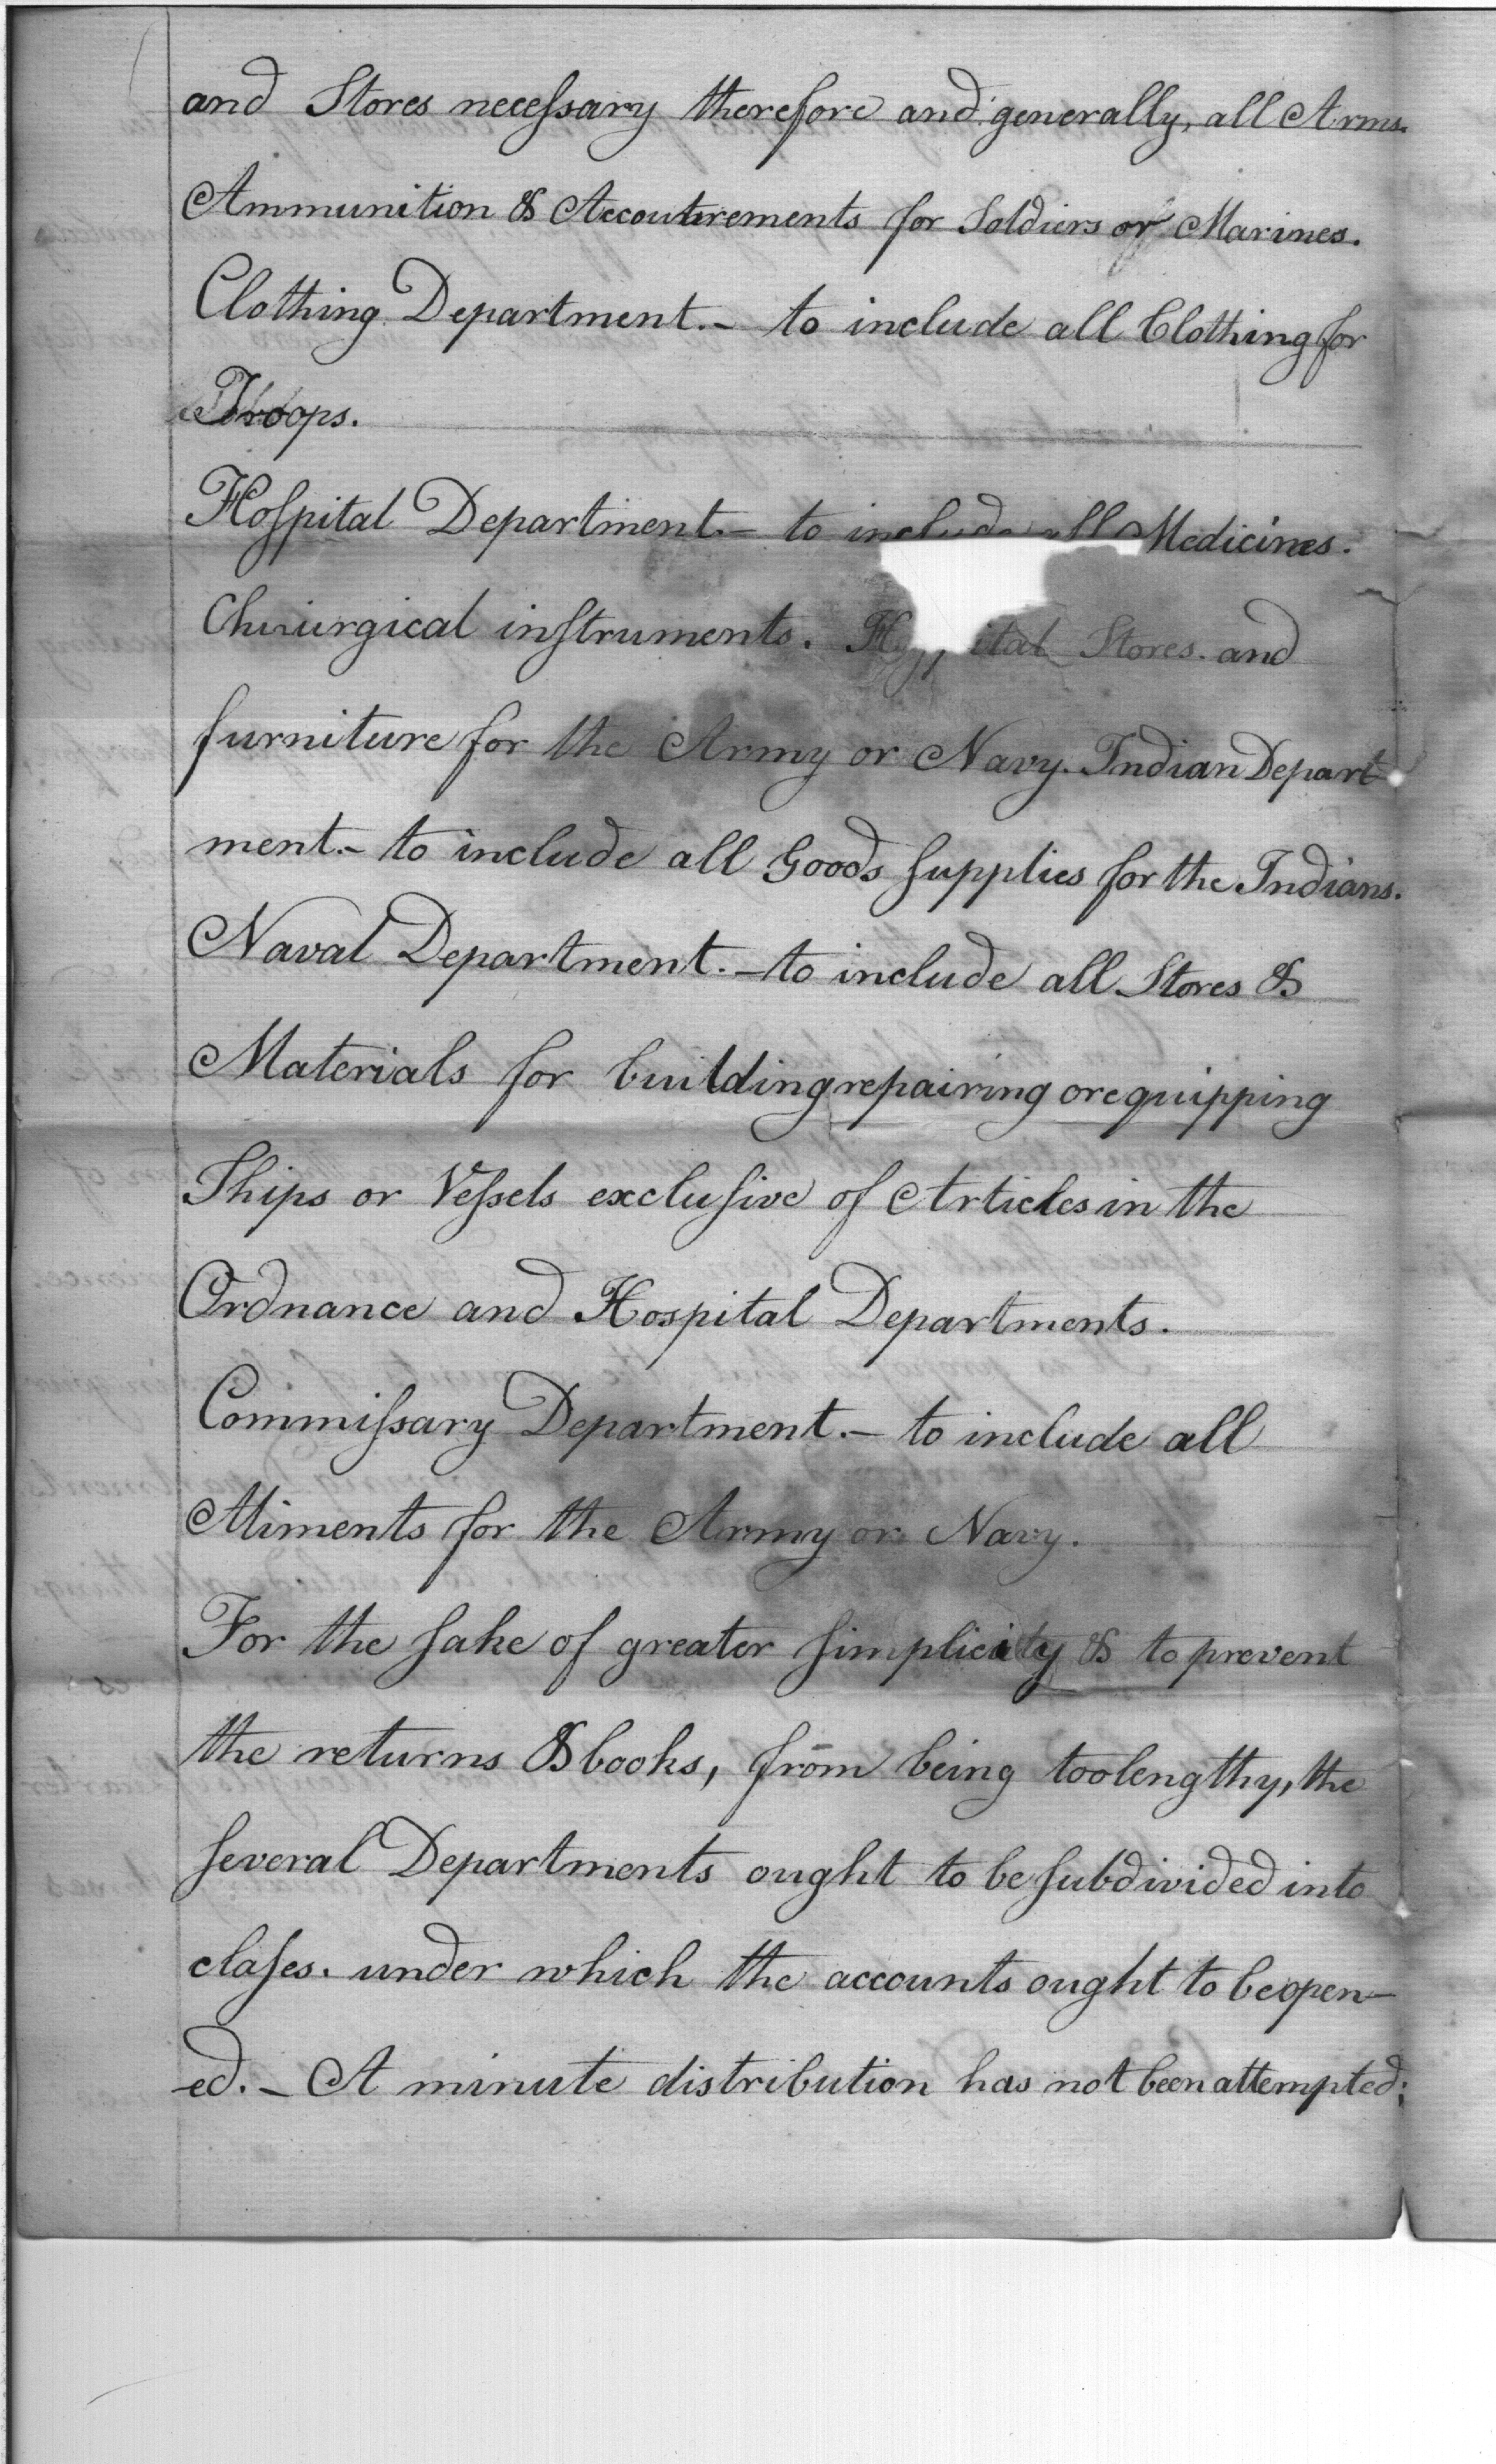 and Stores necessary therefore and generally, all Arms.
Ammunition & Accoutrements for Soldiers or Marines.
Clothing Department.- to include all Clothing for
Troops.
Hospital Department.- to include all Medicines.
Chirurgical instruments. Hospital Stores. and
furniture for the Army or Navy. Indian Depart
ment.- to include all Goods supplies for the Indians.
Naval Department.- to include all Stores &
Materials for building repairing or equipping
Ships or Vessels exclusive of Articles in the
Ordnance and Hospital Departments.
Commissary Department.- to include all
Aliments for the Army or Navy.
For the sake of greater simplicity & to prevent
the returns & books, from being too lengthy, the
several Departments ought to be subdivided into
classes. under which the accounts ought to be open-
ed.- A minute distribution has not been attempted;